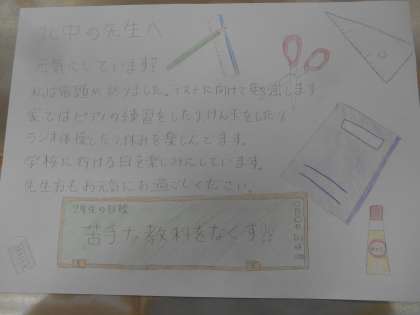 北中の先生へ
元気にしていますか?
私は宿題が終りました。テストに向けて勉強します
家ではピアノの練習をしたりけん玉をしたり
ランチ体操したり休みを楽しんでます。
学校に行ける日を楽しみにしています。
先生方もお元気にお過しください。
2年生の目標
苦手な教科をなくす!!